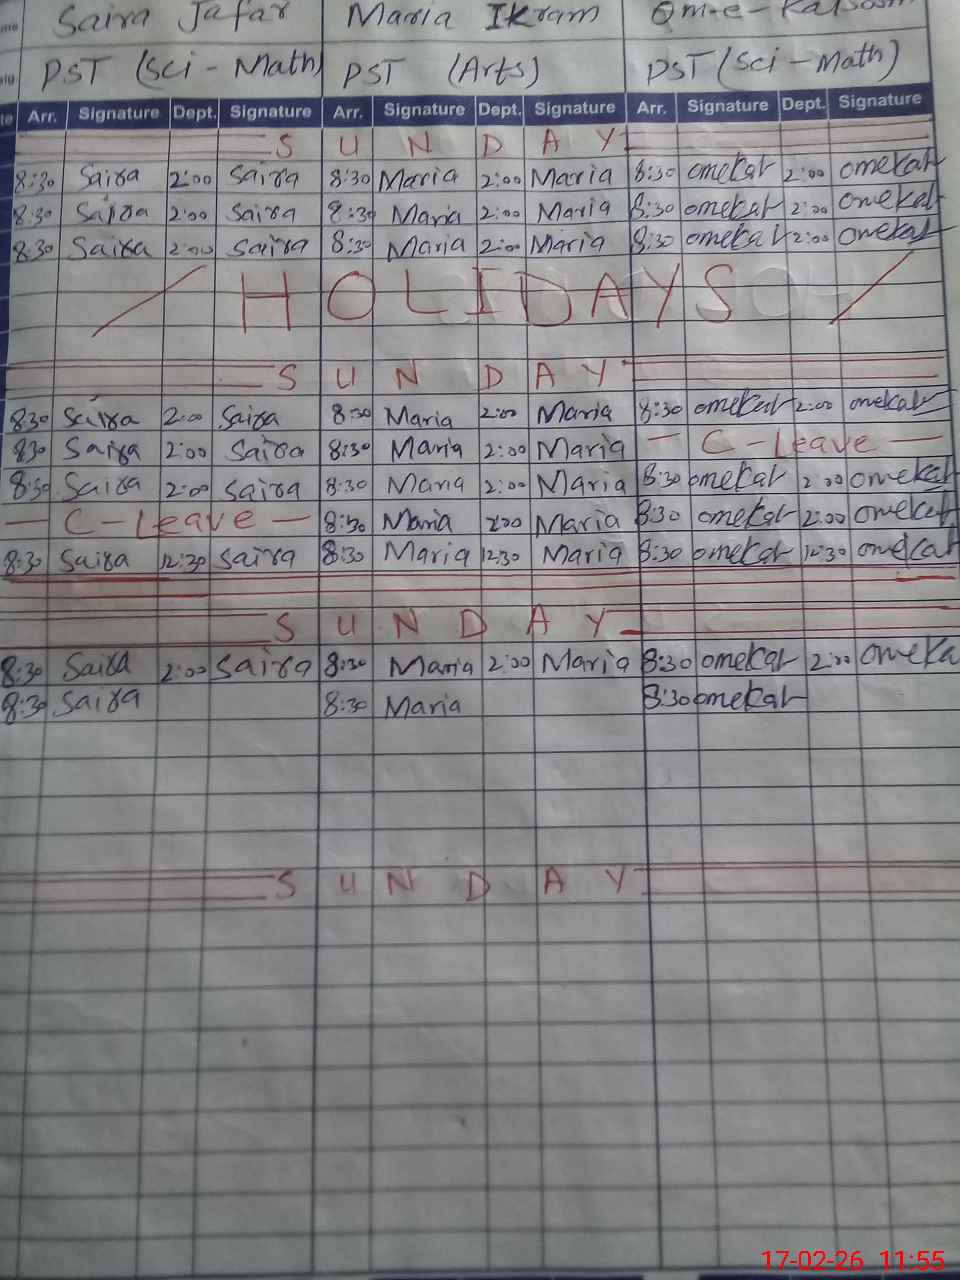 Saira Jafar Maria Ikram Om-e-Kalsoom
PST (Sci-Math) PST (Arts) PST (Sci-Math)
te Arr. Signature Dept. Signature Arr. Signature Dept. Signature Arr. Signature Dept. Signature
SUNDAY
8:30 Saira 2:00 Saira 8:30 Maria 2:00 Maria 8:30 omekal 2:00 omekal
8:30 Saira 2:00 Saira 8:30 Maria 2:00 Maria 8:30 omekal 2:00 omekal
8:30 Saira 2:00 Saira 8:30 Maria 2:00 Maria 8:30 omekal 2:00 omekal
/ HOLIDAYS /
SUNDAY
8:30 Saira 2:00 Saira 8:30 Maria 2:00 Maria 8:30 omekal 2:00 omekal
8:30 Saira 2:00 Saira 8:30 Maria 2:00 Maria — C-Leave —
8:30 Saira 2:00 Saira 8:30 Maria 2:00 Maria 8:30 omekal 2:00 omekal
— C-Leave — 8:30 Maria 2:00 Maria 8:30 omekal 2:00 omekal
8:30 Saira 12:30 Saira 8:30 Maria 12:30 Maria 8:30 omekal 12:30 omekal
SUNDAY
8:30 Saira 2:00 Saira 8:30 Maria 2:00 Maria 8:30 omekal 2:00 omeka
8:30 Saira 8:30 Maria 8:30 omekal
SUNDAY
17-02-26 11:55